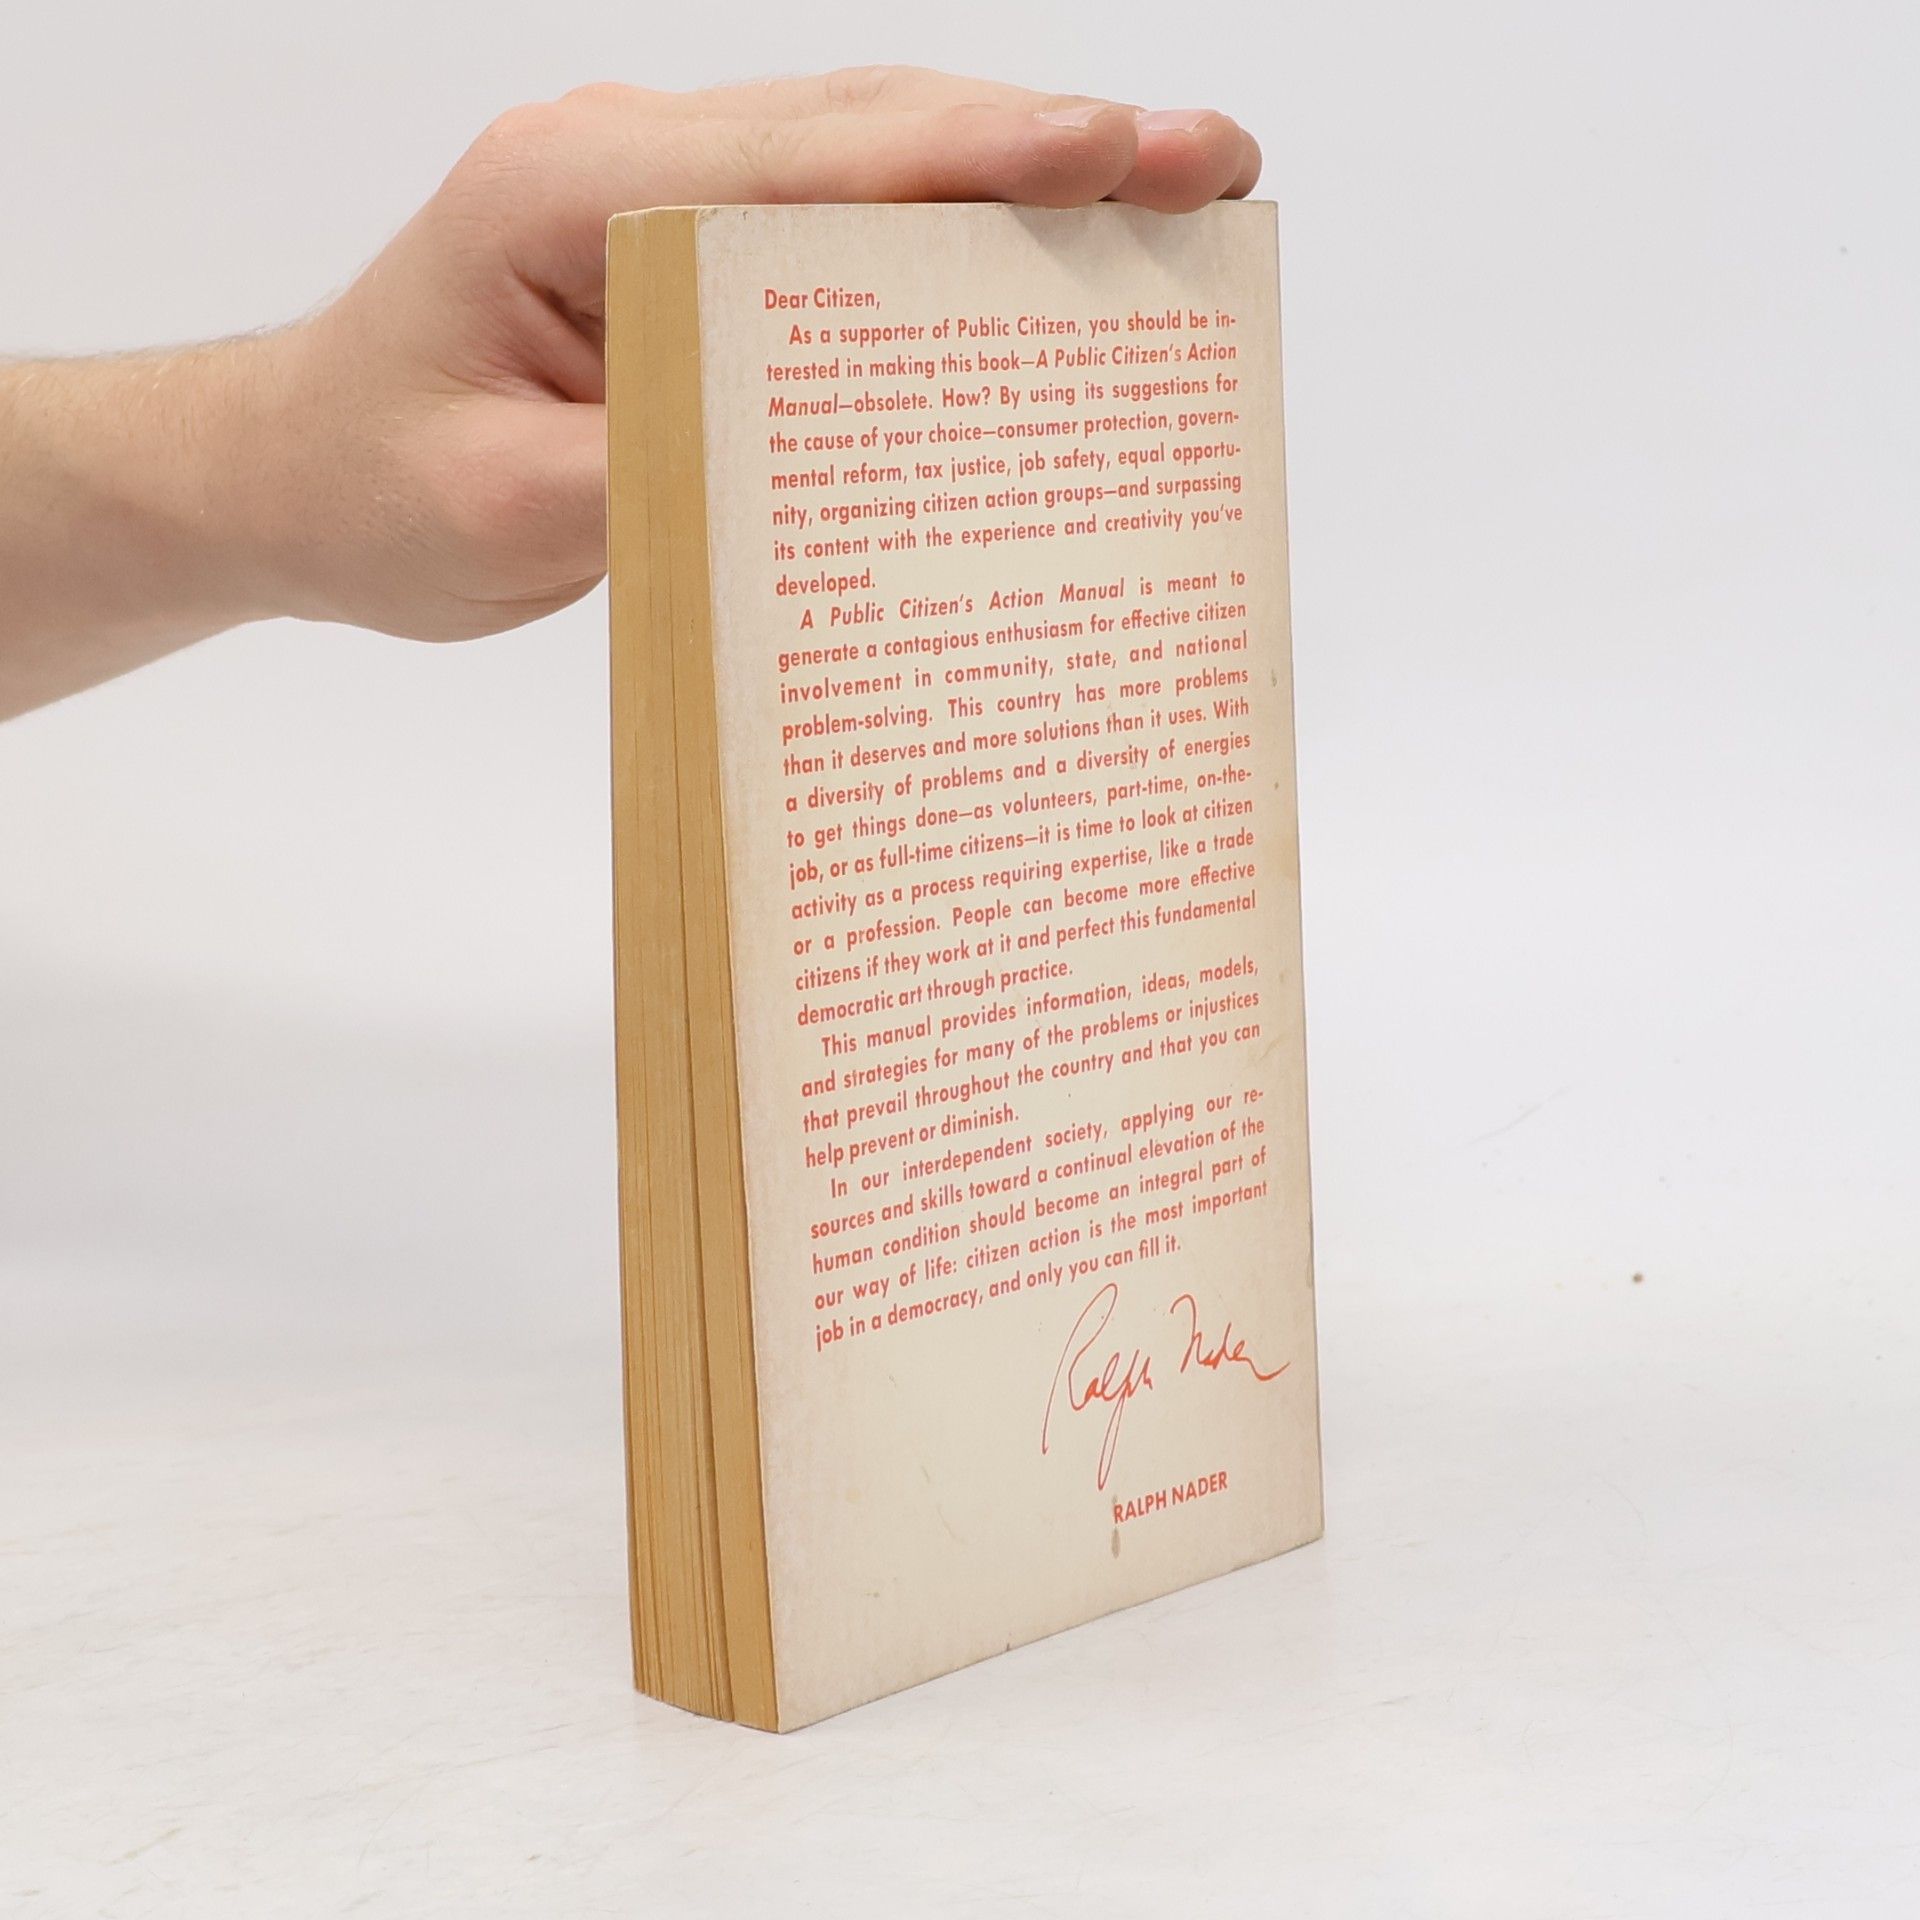 Dear Citizen,
As a supporter of Public Citizen, you should be in-
terested in making this book—A Public Citizen's Action
Manual—obsolete. How? By using its suggestions for
the cause of your choice—consumer protection, govern-
mental reform, tax justice, job safety, equal opportu-
nity, organizing citizen action groups—and surpassing
its content with the experience and creativity you've
developed.
A Public Citizen's Action Manual is meant to
generate a contagious enthusiasm for effective citizen
involvement in community, state, and national
problem-solving. This country has more problems
than it deserves and more solutions than it uses. With
a diversity of problems and a diversity of energies
to get things done—as volunteers, part-time, on-the-
job, or as full-time citizens—it is time to look at citizen
activity as a process requiring expertise, like a trade
or a profession. People can become more effective
citizens if they work at it and perfect this fundamental
democratic art through practice.
This manual provides information, ideas, models,
and strategies for many of the problems or injustices
that prevail throughout the country and that you can
help prevent or diminish.
In our interdependent society, applying our re-
sources and skills toward a continual elevation of the
human condition should become an integral part of
our way of life: citizen action is the most important
job in a democracy, and only you can fill it.
Ralph Nader
RALPH NADER